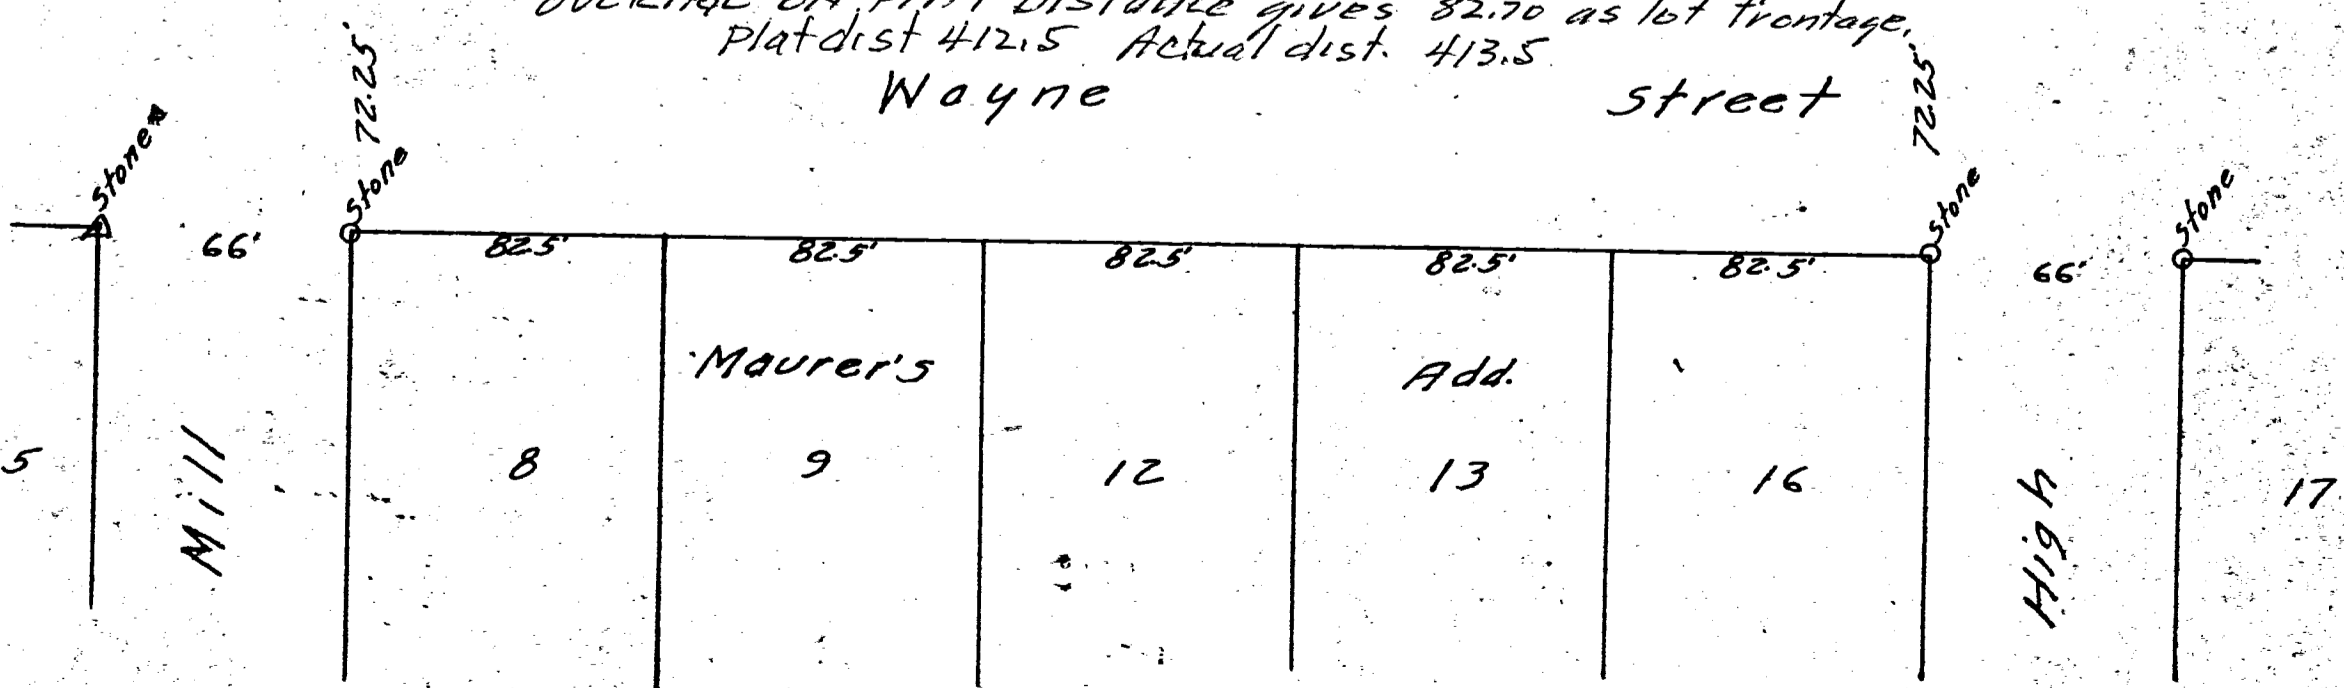 Distance gives 82.70 as lot frontage.
Plat dist 412.5 Actual dist. 413.5
Wayne Street
72.25'
72.25'
Stone
Stone
Stone
Stone
66'
82.5'
82.5'
82.5'
82.5'
82.5'
66'
Maurer's Add.
5
Mill
8
9
12
13
16
High
17